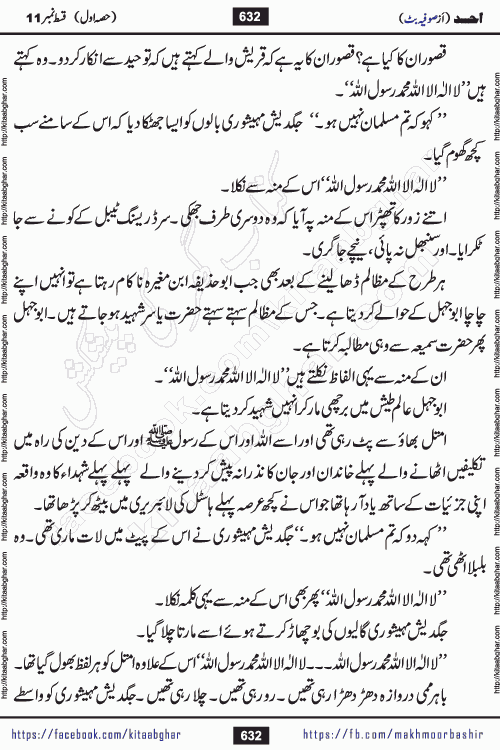 اُحد (از صوفیہ بٹ) 632 (حصہ اول) قسط نمبر 11
قصور ان کا کیا ہے؟ قصور ان کا یہ ہے کہ قریش والے کہتے ہیں کہ توحید سے انکار کر دو۔ وہ کہتے
ہیں ’’لا الہ الا اللہ محمد رسول اللہ‘‘۔
’’کہو کہ تم مسلمان نہیں ہو۔‘‘ جگدیش مہیشوری بالوں کو ایسا جھٹکا دیا کہ اس کے سامنے سب
کچھ گھوم گیا۔
’’لا الہ الا اللہ محمد رسول اللہ‘‘ اس کے منہ سے نکلا۔
اتنے زور کا تھپڑ اس کے منہ پہ آیا کہ وہ دوسری طرف جھکی۔ سر ڈریسنگ ٹیبل کے کونے سے جا
ٹکرایا۔ اور سنبھل نہ پائی، نیچے جا گری۔
ہر طرح کے مظالم ڈھا لینے کے بعد بھی جب ابو حذیفہ ابن مغیرہ ناکام رہتا ہے تو انہیں اپنے
چاچا ابوجہل کے حوالے کر دیتا ہے۔ جس کے مظالم سہتے سہتے حضرت یاسر شہید ہو جاتے ہیں۔ ابوجہل
پھر حضرت سمیعہ سے وہی مطالبہ کرتا ہے۔
ان کے منہ سے یہی الفاظ نکلتے ہیں ’’لا الہ الا اللہ محمد رسول اللہ‘‘۔
ابوجہل عالم طیش میں برچھی مار کر انہیں شہید کر دیتا ہے۔
امتل بھاؤ سے پٹ رہی تھی اور اسے اللہ اور اس کے رسول ﷺ اور اس کے دین کی راہ میں
تکلیفیں اٹھانے والے پہلے خاندان اور جان کا نذرانہ پیش کر دینے والے پہلے پہلے شہداء کا وہ واقعہ
اپنی جزئیات کے ساتھ یاد آ رہا تھا جو اس نے کچھ عرصہ پہلے ہاسٹل کی لائبریری میں بیٹھ کر پڑھا تھا۔
’’کہہ دو کہ تم مسلمان نہیں ہو۔‘‘ جگدیش مہیشوری نے اس کے پیٹ میں لات ماری تھی۔ وہ
بلبلا اٹھی تھی۔
’’لا الہ الا اللہ محمد رسول اللہ‘‘ پھر بھی اس کے منہ سے یہی کلمہ نکلا۔
جگدیش مہیشوری گالیوں کی بوچھاڑ کرتے ہوئے اسے مارتا چلا گیا۔
’’لا الہ الا اللہ محمد رسول اللہ۔۔۔لا الہ الا اللہ محمد رسول اللہ‘‘ اس کے علاوہ امتل کو ہر لفظ بھول گیا تھا۔
باہر ممی دروازہ دھڑ دھڑا رہی تھیں۔ رو رہی تھیں۔ چلا رہی تھیں۔ جگدیش مہیشوری کو واسطے
https://facebook.com/kitaabghar 632 https://fb.com/makhmoorbashir
http://kitaabghar.com http://kitaabghar.com http://kitaabghar.com http://kitaabghar.com http://kitaabghar.com http://kitaabghar.com http://kitaabghar.com http://kitaabghar.com
http://kitaabghar.com http://kitaabghar.com http://kitaabghar.com http://kitaabghar.com http://kitaabghar.com http://kitaabghar.com http://kitaabghar.com http://kitaabghar.com